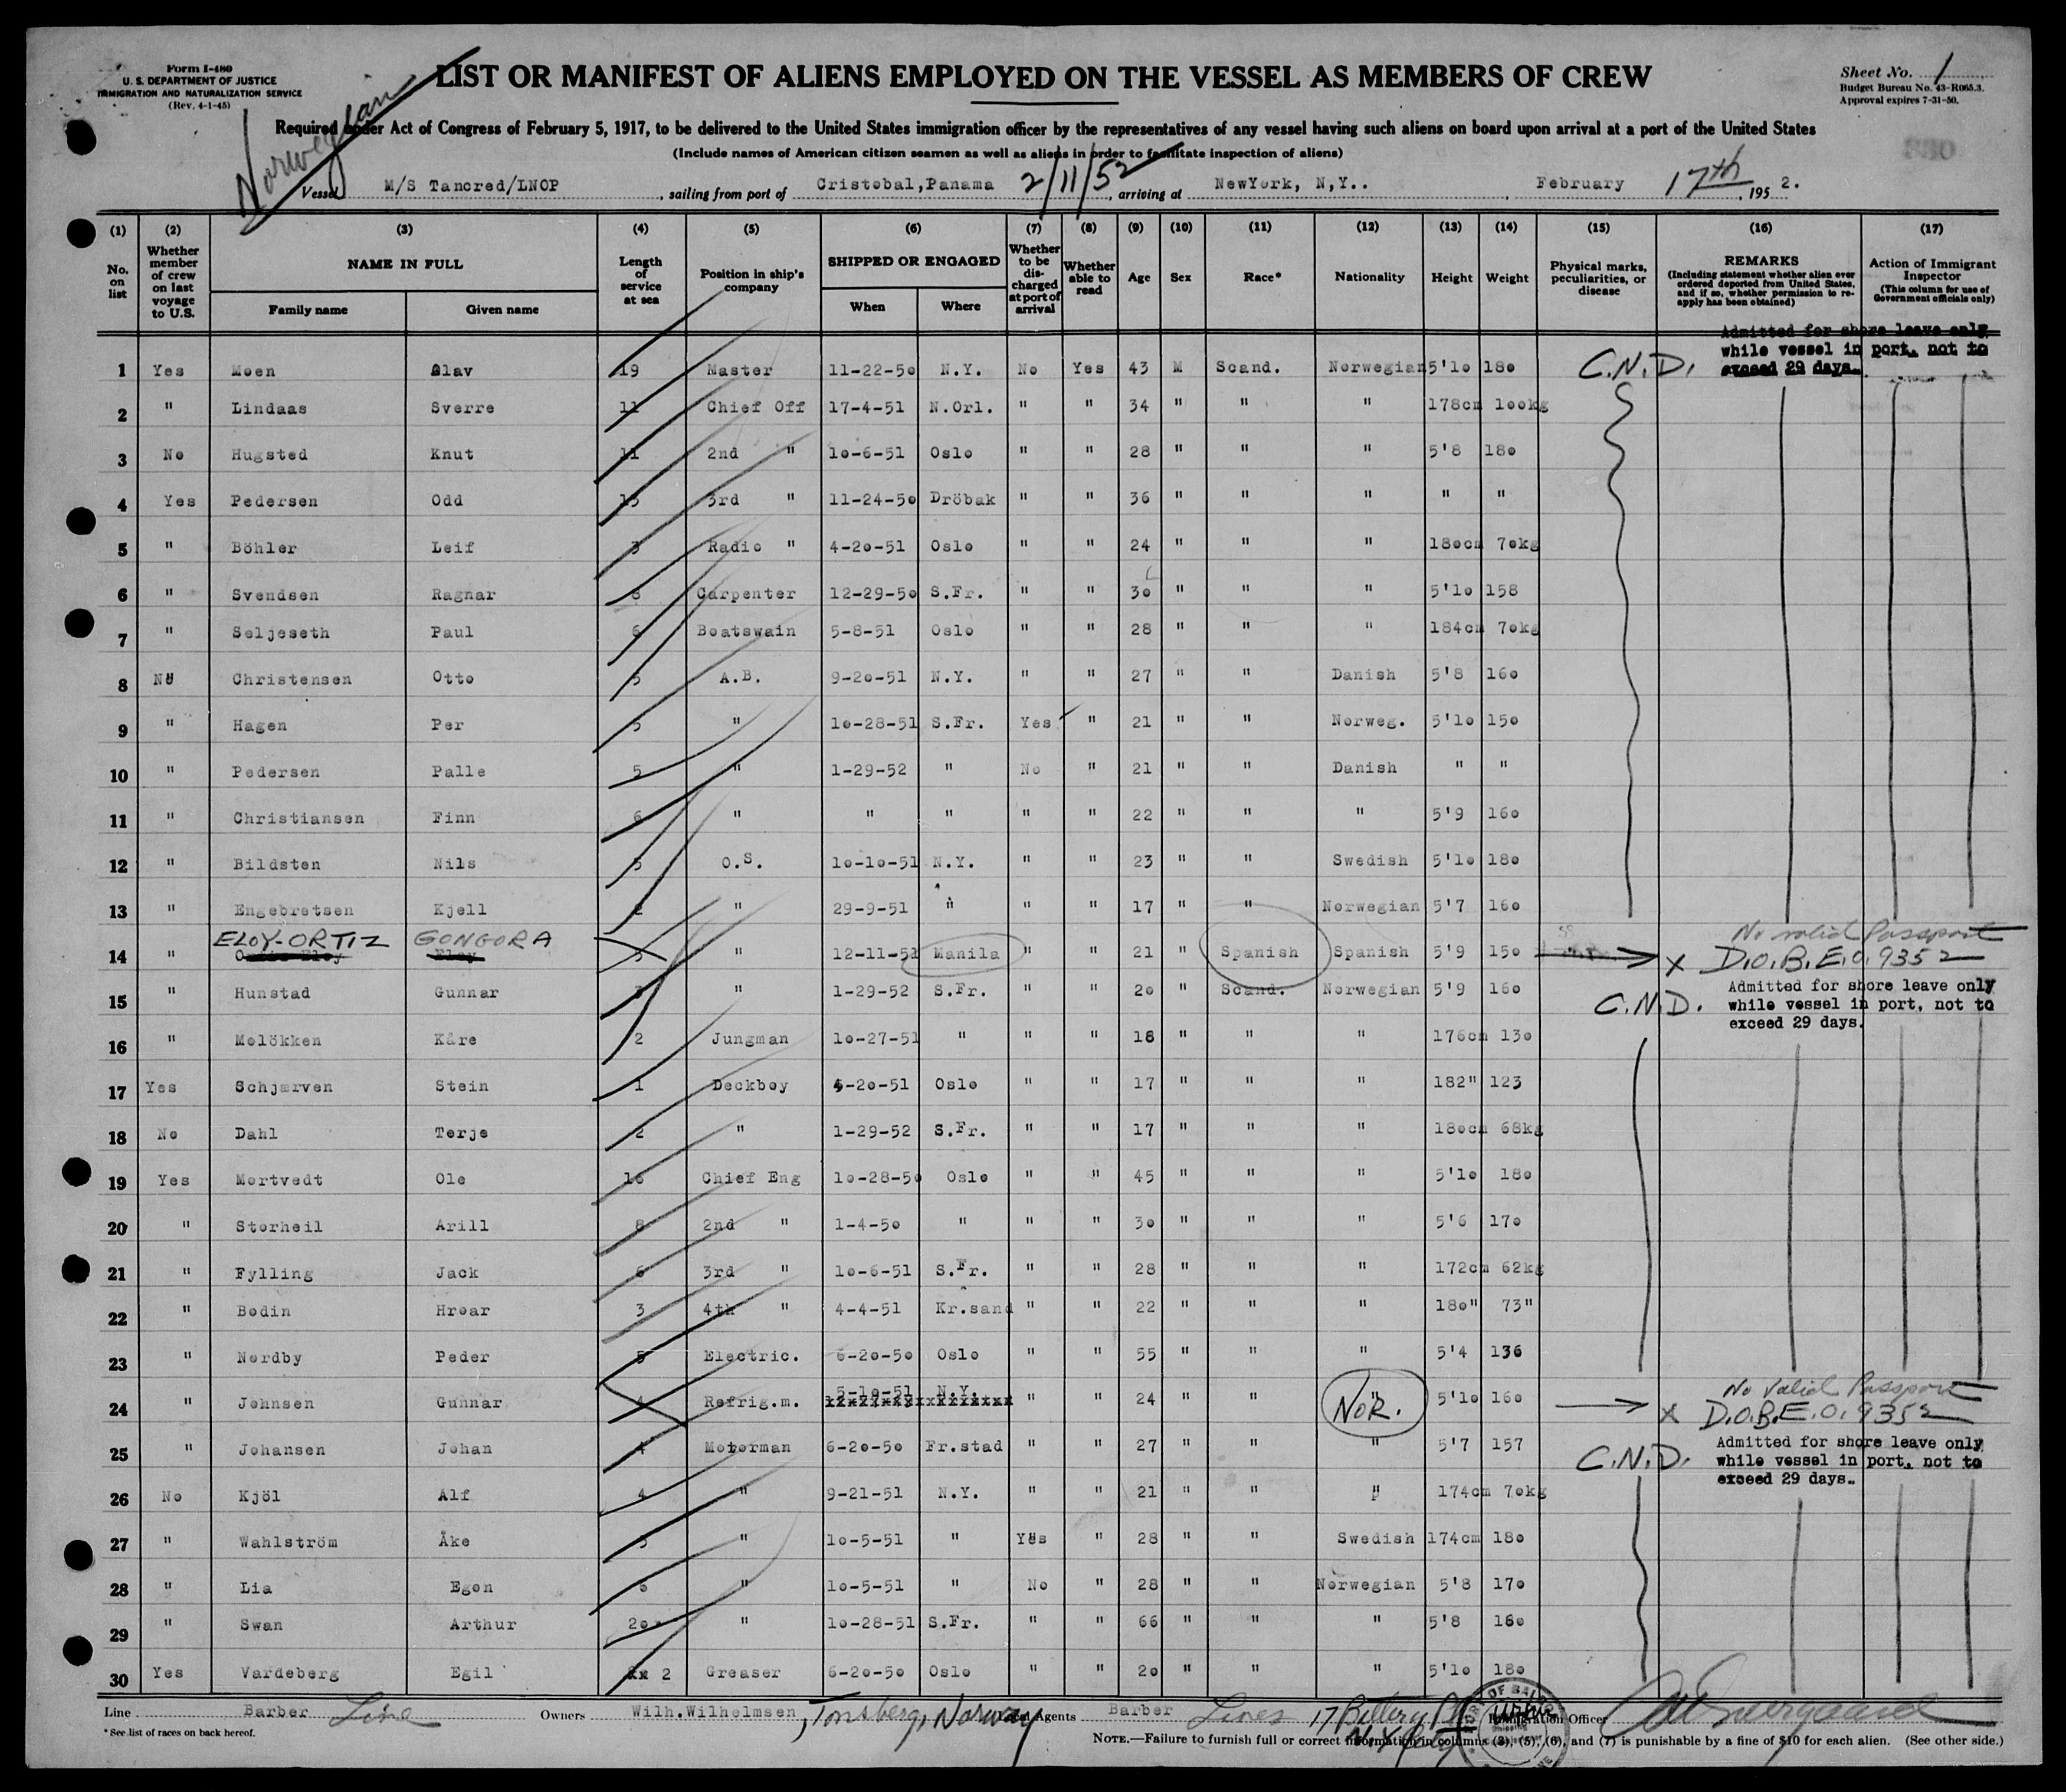 Form I-480
U. S. DEPARTMENT OF JUSTICE
IMMIGRATION AND NATURALIZATION SERVICE
(Rev. 4-1-45)
Norwegian
LIST OR MANIFEST OF ALIENS EMPLOYED ON THE VESSEL AS MEMBERS OF CREW
Sheet No. 1
Budget Bureau No. 43-R065.3.
Approval expires 7-31-50.
Required under Act of Congress of February 5, 1917, to be delivered to the United States immigration officer by the representatives of any vessel having such aliens on board upon arrival at a port of the United States
(Include names of American citizen seamen as well as aliens in order to facilitate inspection of aliens)
Vessel M/S Tancred/LNOP, sailing from port of Cristobal,Panama 2/11/52, arriving at NewYork, N,Y.., February 17th, 1952.
(1) No. on list
(2) Whether member of crew on last voyage to U.S.
(3) NAME IN FULL Family name Given name
(4) Length of service at sea
(5) Position in ship's company
(6) SHIPPED OR ENGAGED When Where
(7) Whether to be discharged at port of arrival
(8) Whether able to read
(9) Age
(10) Sex
(11) Race*
(12) Nationality
(13) Height
(14) Weight
(15) Physical marks, peculiarities, or disease
(16) REMARKS (Including statement whether alien ever ordered deported from United States, and if so, whether permission to reapply has been obtained)
(17) Action of Immigrant Inspector (This column for use of Government officials only)
Admitted for shore leave only
while vessel in port, not to
exceed 29 days.
1 Yes Moen Olav 19 Master 11-22-50 N.Y. No Yes 43 M Scand. Norwegian 5'10 180 C.N.D.
2 " Lindaas Sverre 11 Chief Off 17-4-51 N.Orl. " " 34 " " " 178cm 100kg
3 No Hugsted Knut 11 2nd " 10-6-51 Oslo " " 28 " " " 5'8 180
4 Yes Pedersen Odd 15 3rd " 11-24-50 Dröbak " " 36 " " " " "
5 " Böhler Leif 3 Radio " 4-20-51 Oslo " " 24 " " " 180cm 70kg
6 " Svendsen Ragnar 8 Carpenter 12-29-50 S.Fr. " " 30 " " " 5'10 158
7 " Seljeseth Paul 6 Boatswain 5-8-51 Oslo " " 28 " " " 184cm 70kg
8 No Christensen Otto 5 A.B. 9-20-51 N.Y. " " 27 " " Danish 5'8 160
9 " Hagen Per 5 " 10-28-51 S.Fr. Yes " 21 " " Norweg. 5'10 150
10 " Pedersen Palle 5 " 1-29-52 " No " 21 " " Danish " "
11 " Christiansen Finn 6 " " " " " 22 " " " 5'9 160
12 " Bildsten Nils 5 O.S. 10-10-51 N.Y. " " 23 " " Swedish 5'10 180
13 " Engebretsen Kjell 2 " 29-9-51 " " " 17 " " Norwegian 5'7 160
ELOY-ORTIZ GONGORA No valid Passport
14 " " 12-11-51 Manila " " 21 " Spanish Spanish 5'9 150 x D.O.B.E.O. 9352
15 " Hunstad Gunnar " 1-29-52 S.Fr. " " 20 " Scand. Norwegian 5'9 160 C.N.D. Admitted for shore leave only
while vessel in port, not to
exceed 29 days.
16 " Melökken Kåre 2 Jungman 10-27-51 " " " 18 " " " 176cm 130
17 Yes Schjærven Stein 1 Deckboy 6-20-51 Oslo " " 17 " " " 182" 123
18 No Dahl Terje 2 " 1-29-52 S.Fr. " " 17 " " " 180cm 68kg
19 Yes Mortvedt Ole 16 Chief Eng 10-28-50 Oslo " " 45 " " " 5'10 180
20 " Storheil Arill 8 2nd " 1-4-50 " " " 30 " " " 5'6 170
21 " Fylling Jack 6 3rd " 10-6-51 S.Fr. " " 28 " " " 172cm 62kg
22 " Bodin Hroar 3 4th " 4-4-51 Kr.sand " " 22 " " " 180" 73"
23 " Nordby Peder 5 Electric. 6-20-50 Oslo " " 55 " " " 5'4 136
24 " Johnsen Gunnar 4 Refrig.m. 5-10-51 N.Y. " " 24 " " NOR. 5'10 160 x No Valid Passport
D.O.B.E.O. 9352
25 " Johansen Johan 4 Motorman 6-20-50 Fr.stad " " 27 " " " 5'7 157 C.N.D. Admitted for shore leave only
while vessel in port, not to
exceed 29 days.
26 No Kjöl Alf 4 " 9-21-51 N.Y. " " 21 " " " 174cm 70kg
27 " Wahlström Åke 5 " 10-5-51 " Yes " 28 " " Swedish 174cm 180
28 " Lia Egon 6 " 10-5-51 " No " 28 " " Norwegian 5'8 170
29 " Swan Arthur 20 " 10-28-51 S.Fr. " " 66 " " " 5'8 160
30 Yes Vardeberg Egil 2 Greaser 6-20-50 Oslo " " 20 " " " 5'10 180
Line Barber Line Owners Wilh.Wilhelmsen, Tonsberg, Norway Agents Barber Lines 17 Battery Pl. Immigration Officer
*See list of races on back hereof.
NOTE.—Failure to furnish full or correct information in columns (3), (5), (6), and (7) is punishable by a fine of $10 for each alien. (See other side.)